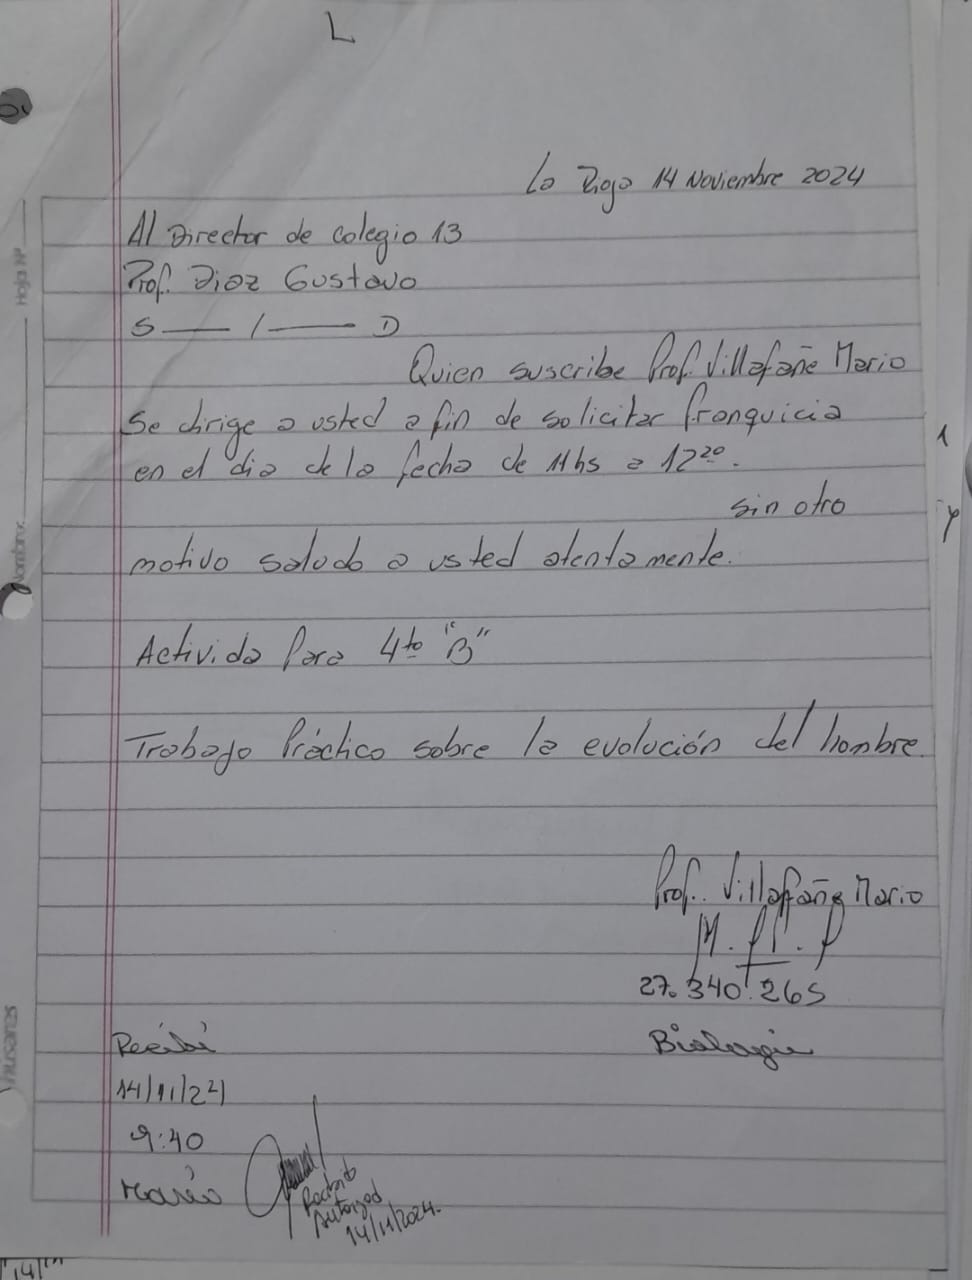 L
La Rioja 14 Noviembre 2024
Al Director de colegio 13
Prof. Diaz Gustavo
S — / — D
Quien suscribe Prof. Villafañe Mario
Se dirige a usted a fin de solicitar franquicia
en el dia de la fecha de 11hs a 12²⁰.
sin otro
motivo saludo a usted atentamente.
Activida Para 4to "B"
Trabajo Práctico sobre la evolución del hombre.
Prof. Villafañe Mario
27.340.265
Biologia
Recibí
14/11/24
9:40
Mario
Recibido
14/11/2024.
Hoja Nº
Nombre:
husares
14/11